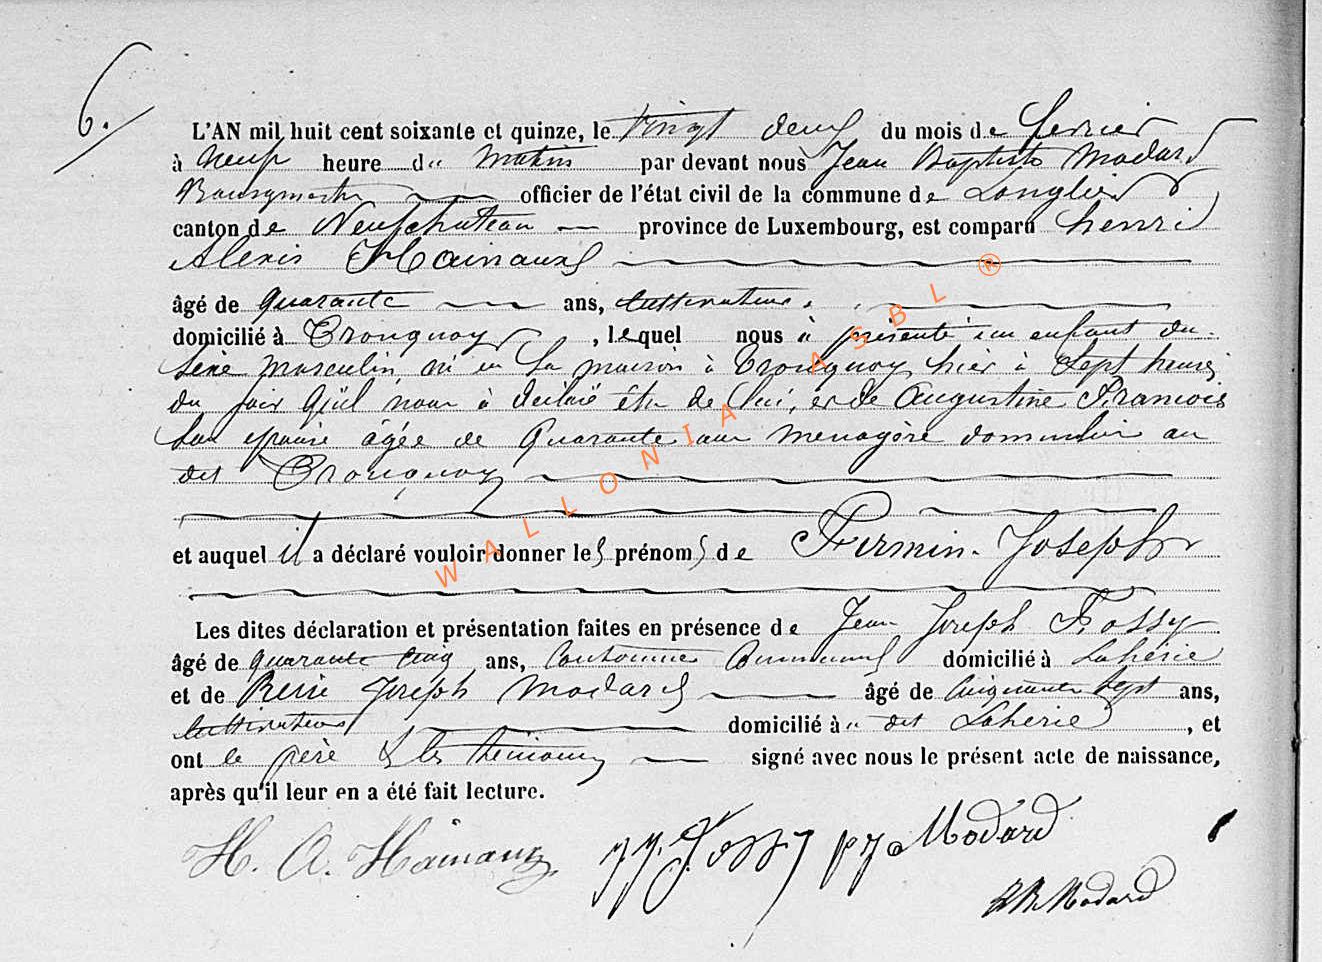 6.
L'AN mil huit cent soixante et quinze, le vingt deux du mois de fevrier
à neuf heure du matin par devant nous Jean Baptiste Modard
Bourgmestre officier de l'état civil de la commune de Longlier
canton de Neufchateau province de Luxembourg, est comparu henri
Alexis Hainaux
âgé de quarante ans, cultivateur
domicilié à Tronquoy, lequel nous à présenté un enfant du
sexe masculin né en Sa maison à Tronquoy hier à Sept heures
du soir Qu'il nous à déclaré être de lui, et de Augustine Francois
Son épouse âgée de Quarante ans menagère domiciliée au
dit Tronquoy
et auquel il a déclaré vouloir donner les prénoms de Firmin-Joseph
Les dites déclaration et présentation faites en présence de Jean Joseph Fossy
âgé de quarante cinq ans, Cantonnier Communal domicilié à Laherie
et de Joseph Modard âgé de Cinquante Sept ans,
Cultivateur domicilié à dit Laherie, et
ont le père & les témoins signé avec nous le présent acte de naissance,
après qu'il leur en a été fait lecture.
H. A. Hainaux JJ. Fossy Modard
JB Modard
WALLONIA ASBL ®